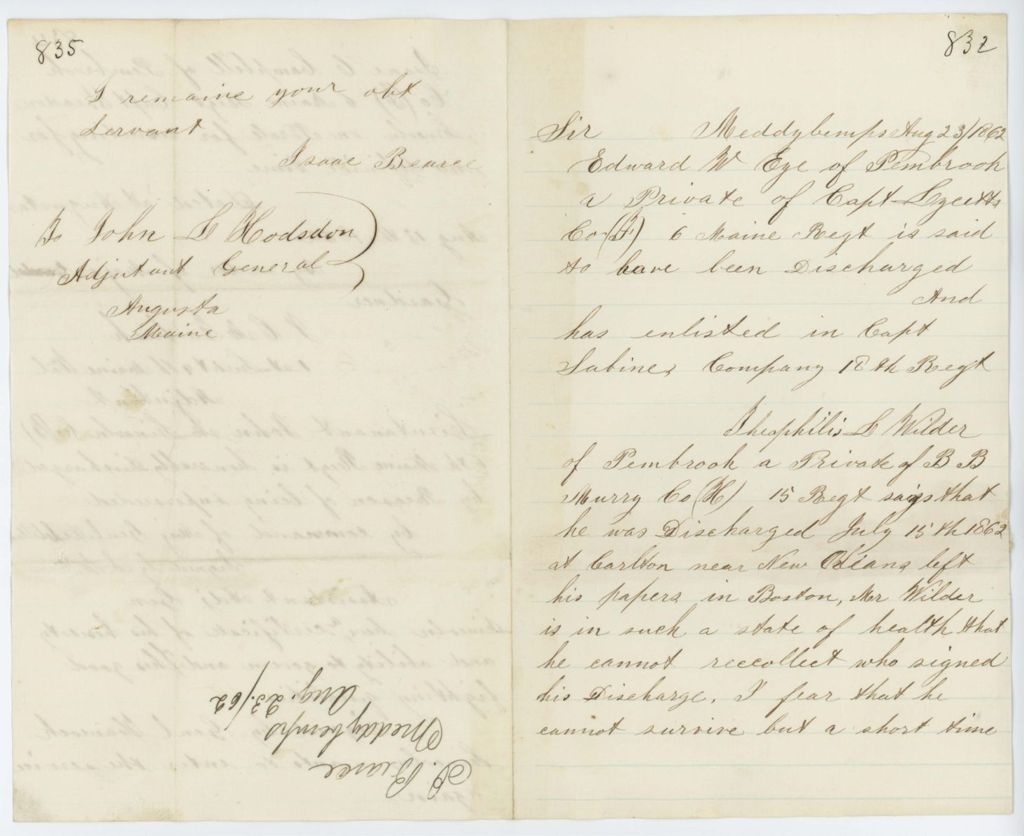 832
Sir Meddybemps Aug 23/1862
Edward W Eye of Pembrook
a Private of Capt
Co (F) 6 Maine Regt is said
to have been Discharged
And
has enlisted in Capt
Sabines Company 18th Regt
Theophilis L Wilder
of Pembrook a Private of B B
Murry Co (H) 15 Regt says that
he was Discharged July 15th 1862
at Carlton near New Orleans left
his papers in Boston, Mr Wilder
is in such a state of health that
he cannot reccollect who signed
his Discharge. I fear that he
cannot survive but a short time
835
I remaine your obt
Servant
Isaac Bearce
To John L Hodsdon
Adjutant General
Augusta
Maine
I. Bearce
Meddybemps
Aug. 23./62